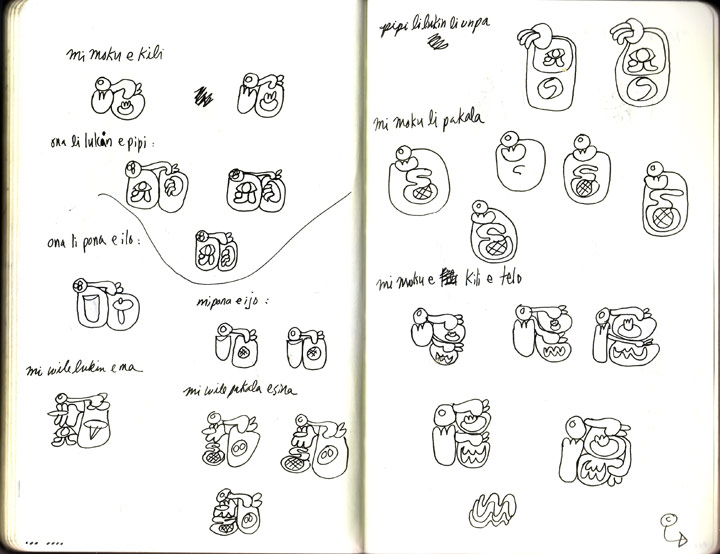 mi moku e kili
ona li lukin e pipi :
ona li pona e ilo :
mi pona e ijo :
mi wile lukin e ma
mi wile pakala e sina
pipi li lukin li unpa
mi moku li pakala
mi moku e kili e telo